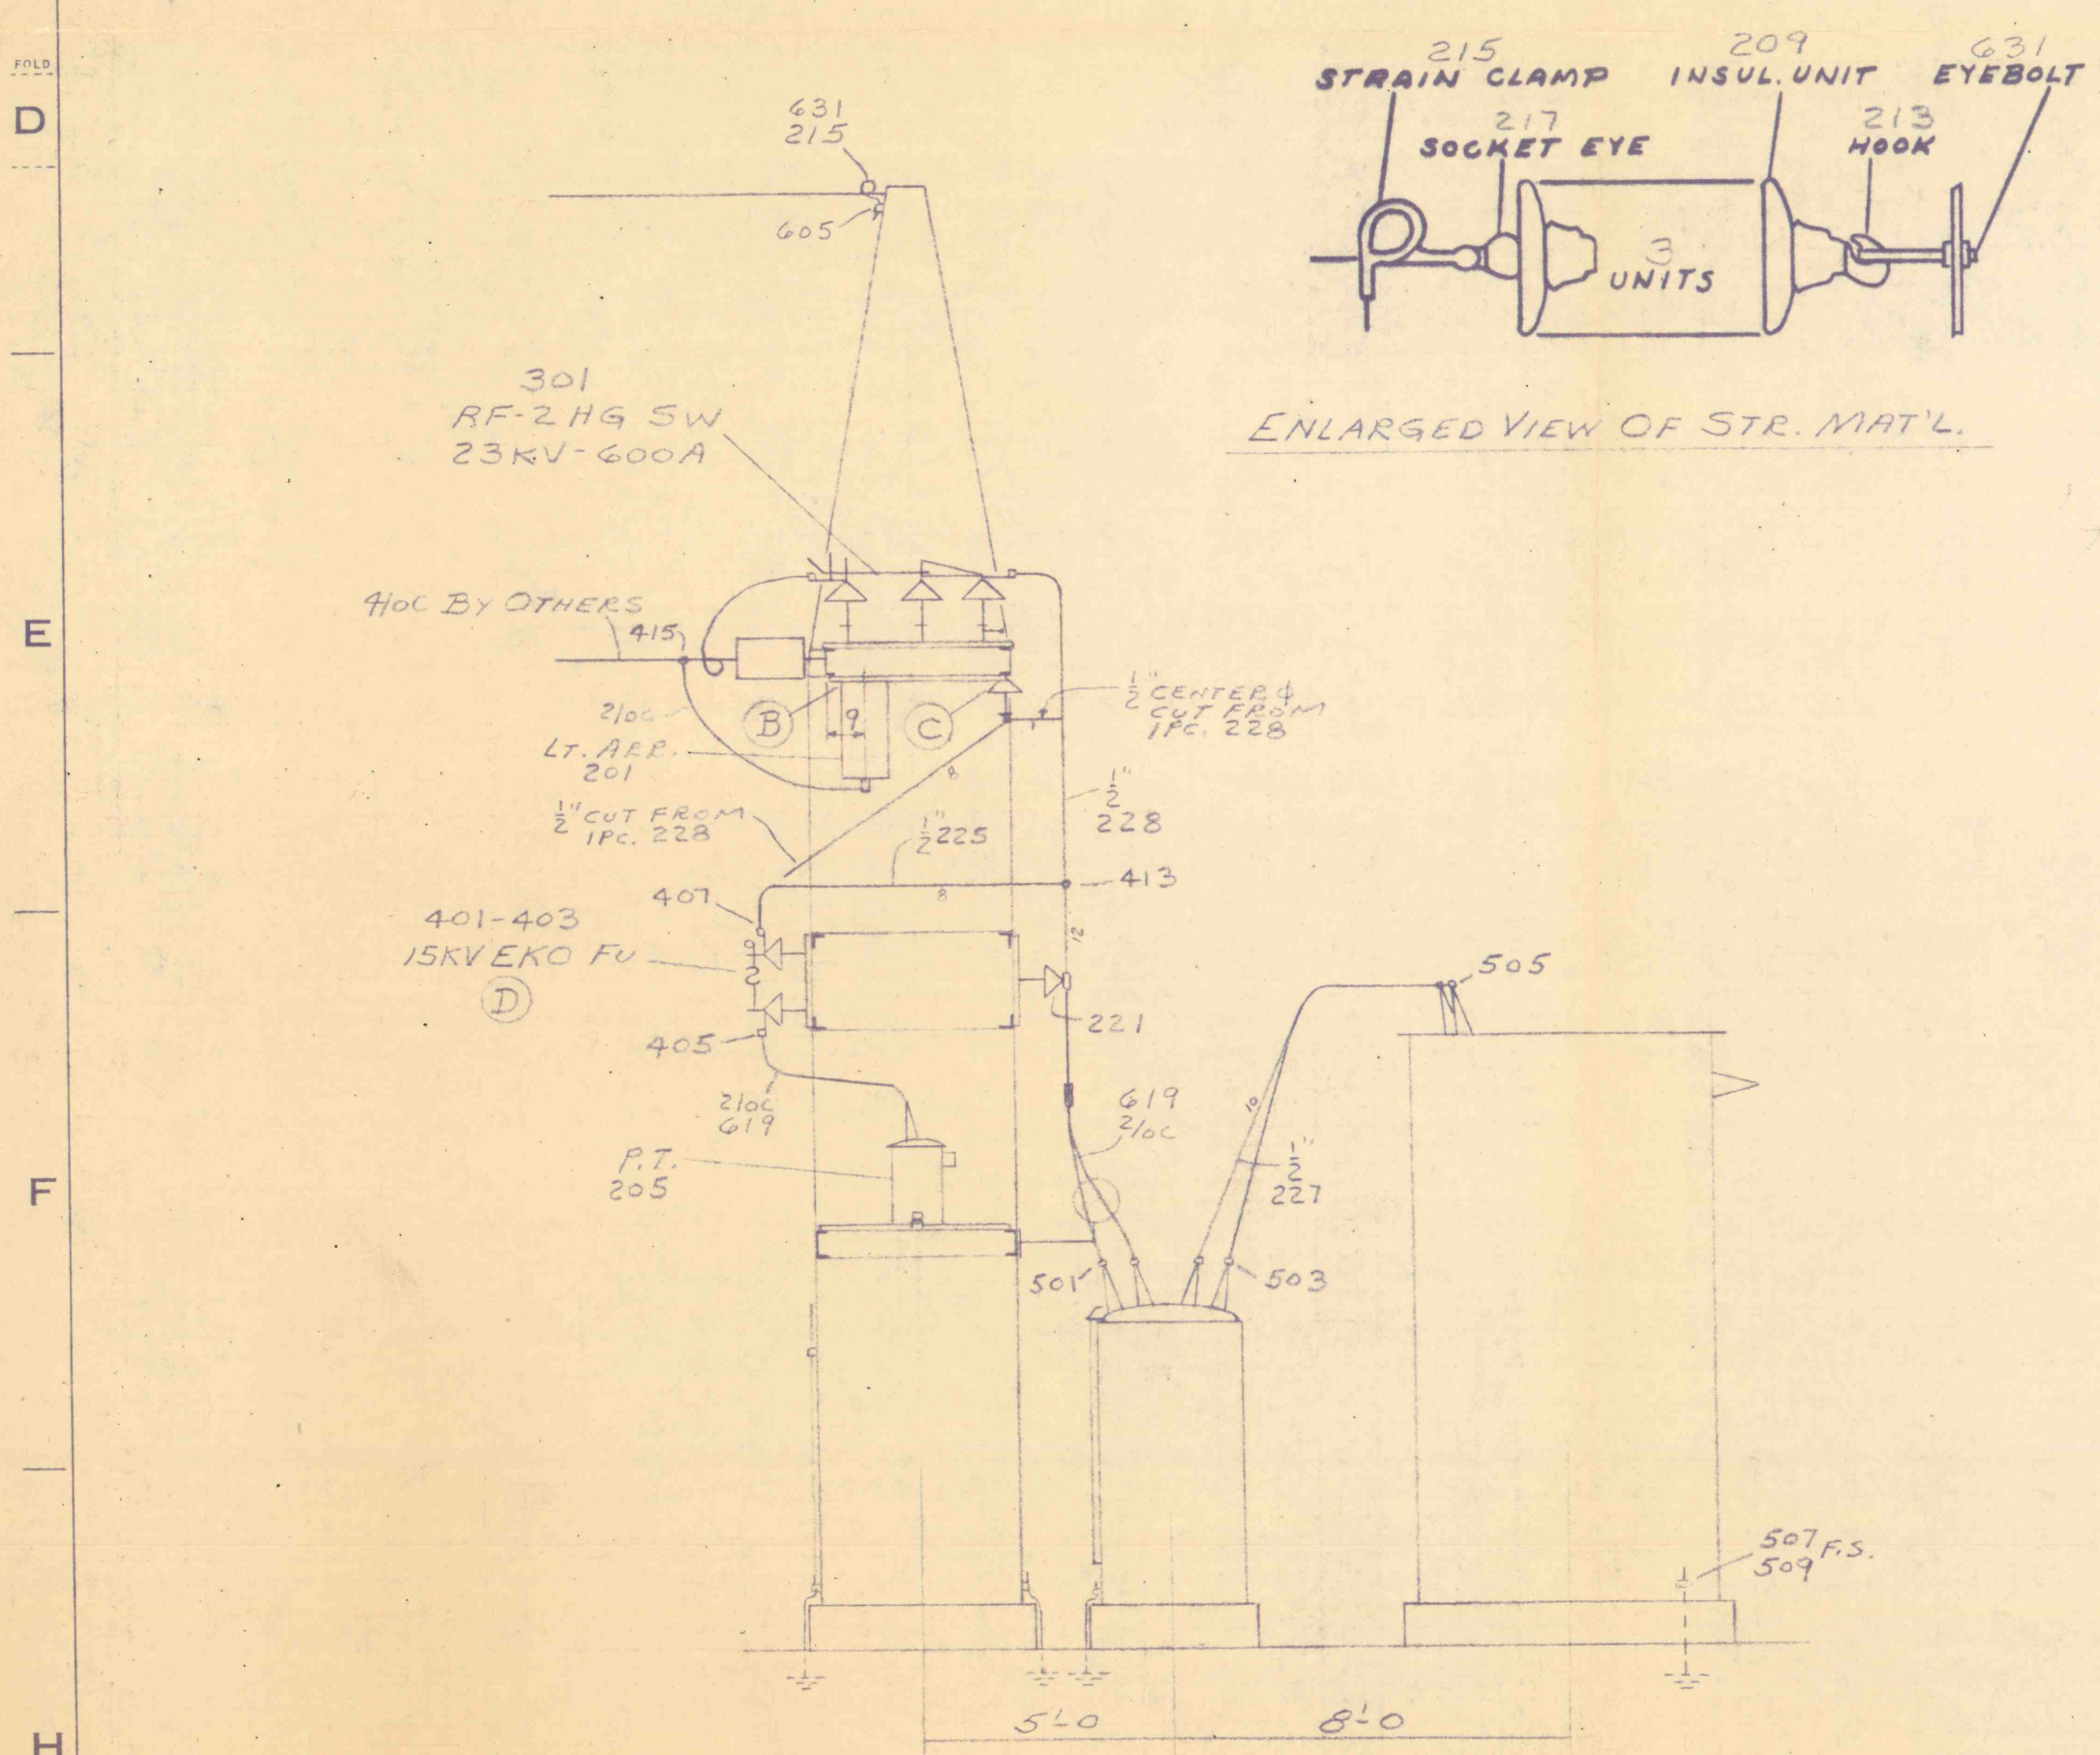 FOLD
D
E
F
H
215
STRAIN CLAMP
209
INSUL. UNIT
631
EYEBOLT
217
SOCKET EYE
213
HOOK
3
UNITS
ENLARGED VIEW OF STR. MAT'L.
631
215
605
301
RF-2 HG SW
23KV-600A
4/0C BY OTHERS
415
2/0C
B
9
C
LT. ARR.
201
1/2" CENTER ϕ
CUT FROM
1PC. 228
8
1/2" CUT FROM
1PC. 228
1/2" 225
1/2"
228
8
413
407
401-403
15KV EKO FU
D
12
405
221
505
2/0C
619
619
2/0C
10
1/2"
227
P.T.
205
501
503
507 F.S.
509
5'-0
8'-0